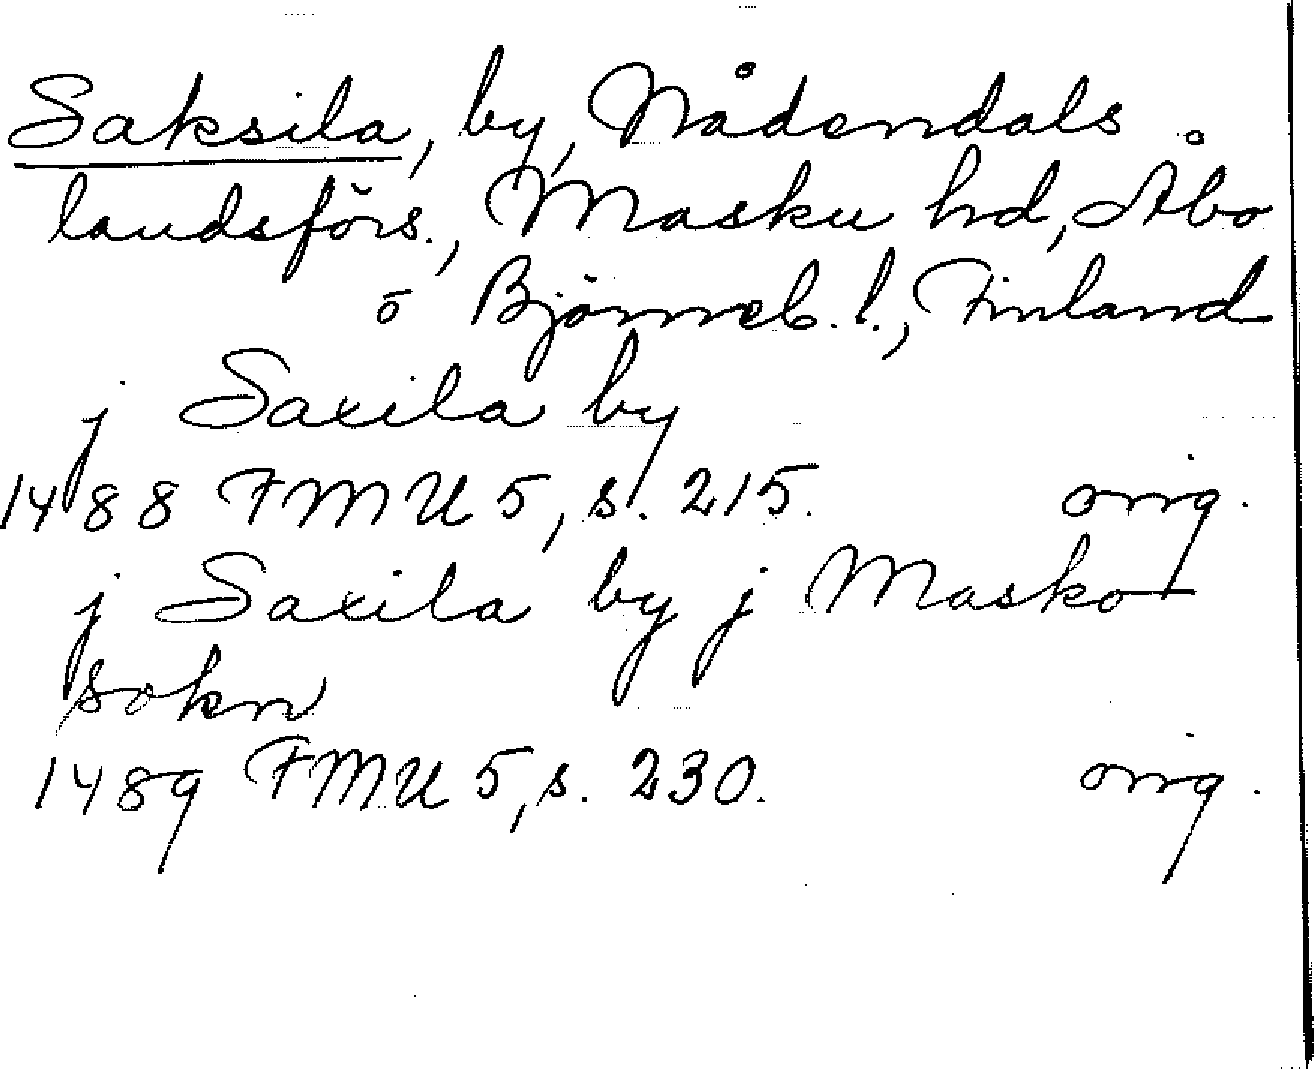 Saksila, by, Nådendals
landsförs., Masku hd, Åbo
o Björneb. l., Finland
j Saxila by
1488 FMU 5, s. 215. orig.
j Saxila by j Masko
sokn
1489 FMU 5, s. 230. orig.